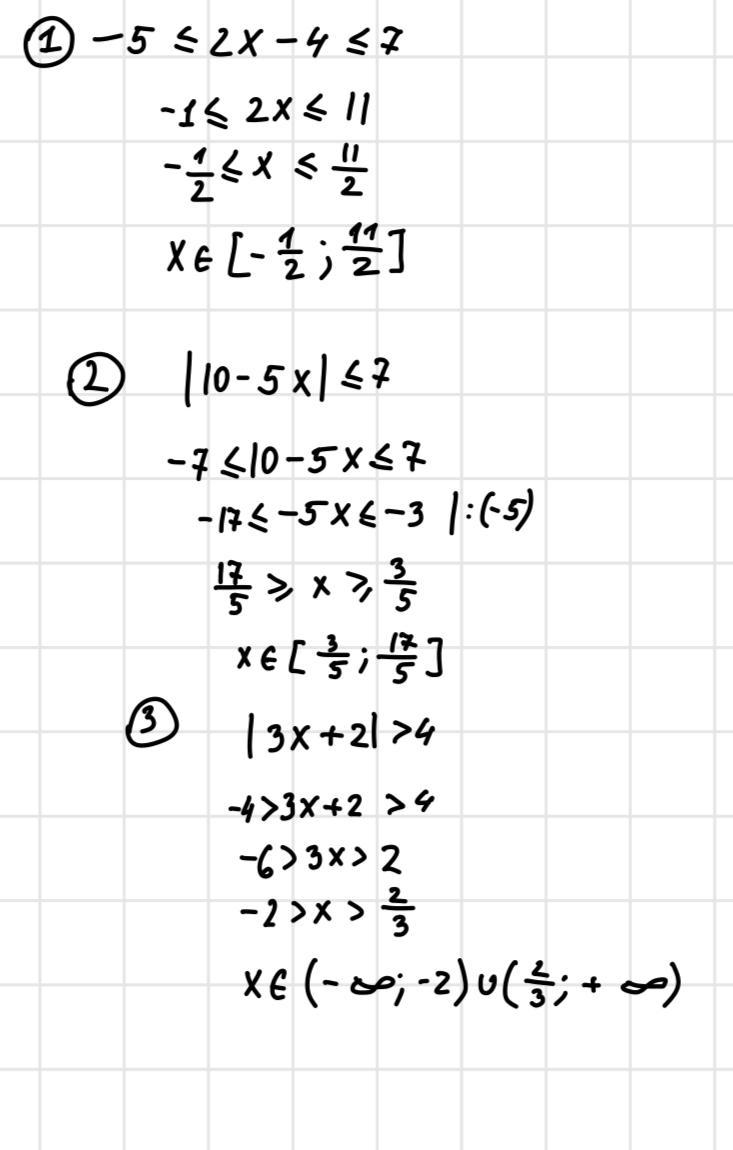 ① -5 ≤ 2x - 4 ≤ 7
-1 ≤ 2x ≤ 11
-1/2 ≤ x ≤ 11/2
x ∈ [-1/2 ; 11/2]
② |10 - 5x| ≤ 7
-7 ≤ 10 - 5x ≤ 7
-17 ≤ -5x ≤ -3 |:(-5)
17/5 ≥ x ≥ 3/5
x ∈ [3/5 ; 17/5]
③ |3x + 2| > 4
-4 > 3x + 2 > 4
-6 > 3x > 2
-2 > x > 2/3
x ∈ (-∞; -2) ∪ (2/3; +∞)